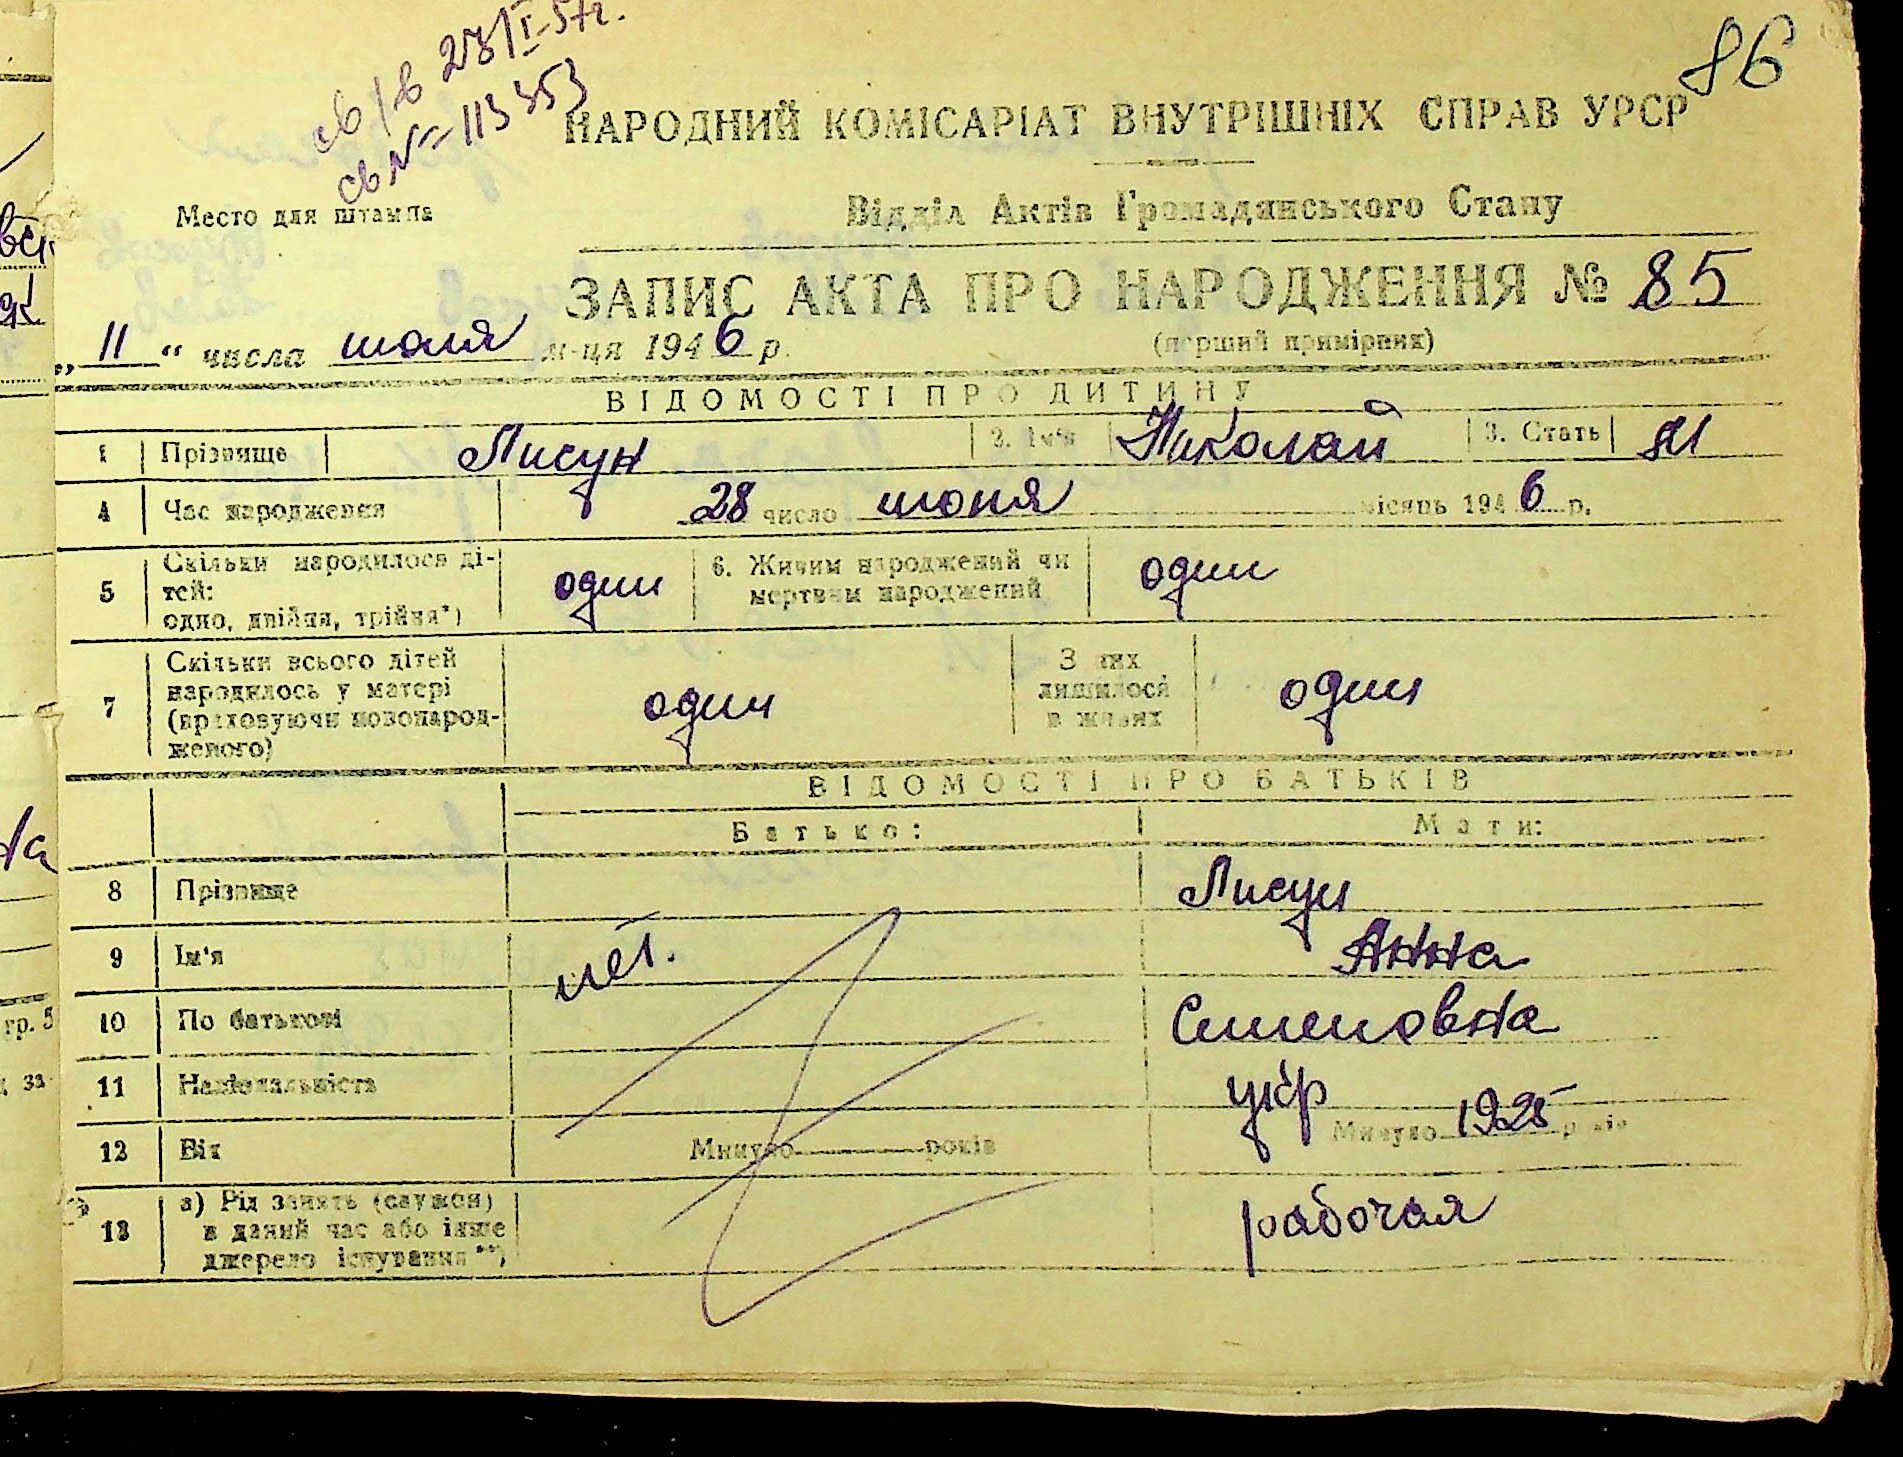 св/в 28/I-57г.
св № 113353
86
НАРОДНИЙ КОМІСАРІАТ ВНУТРІШНІХ СПРАВ УРСР
Место для штампа
Відділ Актів Громадянського Стану
ЗАПИС АКТА ПРО НАРОДЖЕННЯ № 85
„ 11 “ числа июля м-ця 1946 р.
(перший примірник)
ВІДОМОСТІ ПРО ДИТИНУ
1 Прізвище Лисун 2. Ім'я Николай 3. Стать М
4 Час народження 28 число июня місяць 1946 р.
5 Скільки народилося ді-
тей:
одно, двійня, трійня*)
один
6. Живим народжений чи
мертвим народжений
один
7 Скільки всього дітей
народилось у матері
(враховуючи новонарод-
женого)
один
З них
лишилося
в живих
один
ВІДОМОСТІ ПРО БАТЬКІВ
Батько: Мати:
8 Прізвище Лисун
9 Ім'я нет. Анна
10 По батькові Семеновна
11 Національність укр
12 Вік Минуло років Минуло 1925 років
13 а) Рід занять (служби)
в даний час або інше
джерело існування**)
рабочая